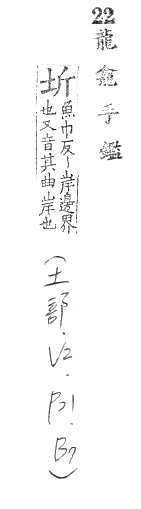 22龍龕手鑑
圻魚巾反〻岸邊界
也又音其曲岸也
(土部.V2.P31.B7)